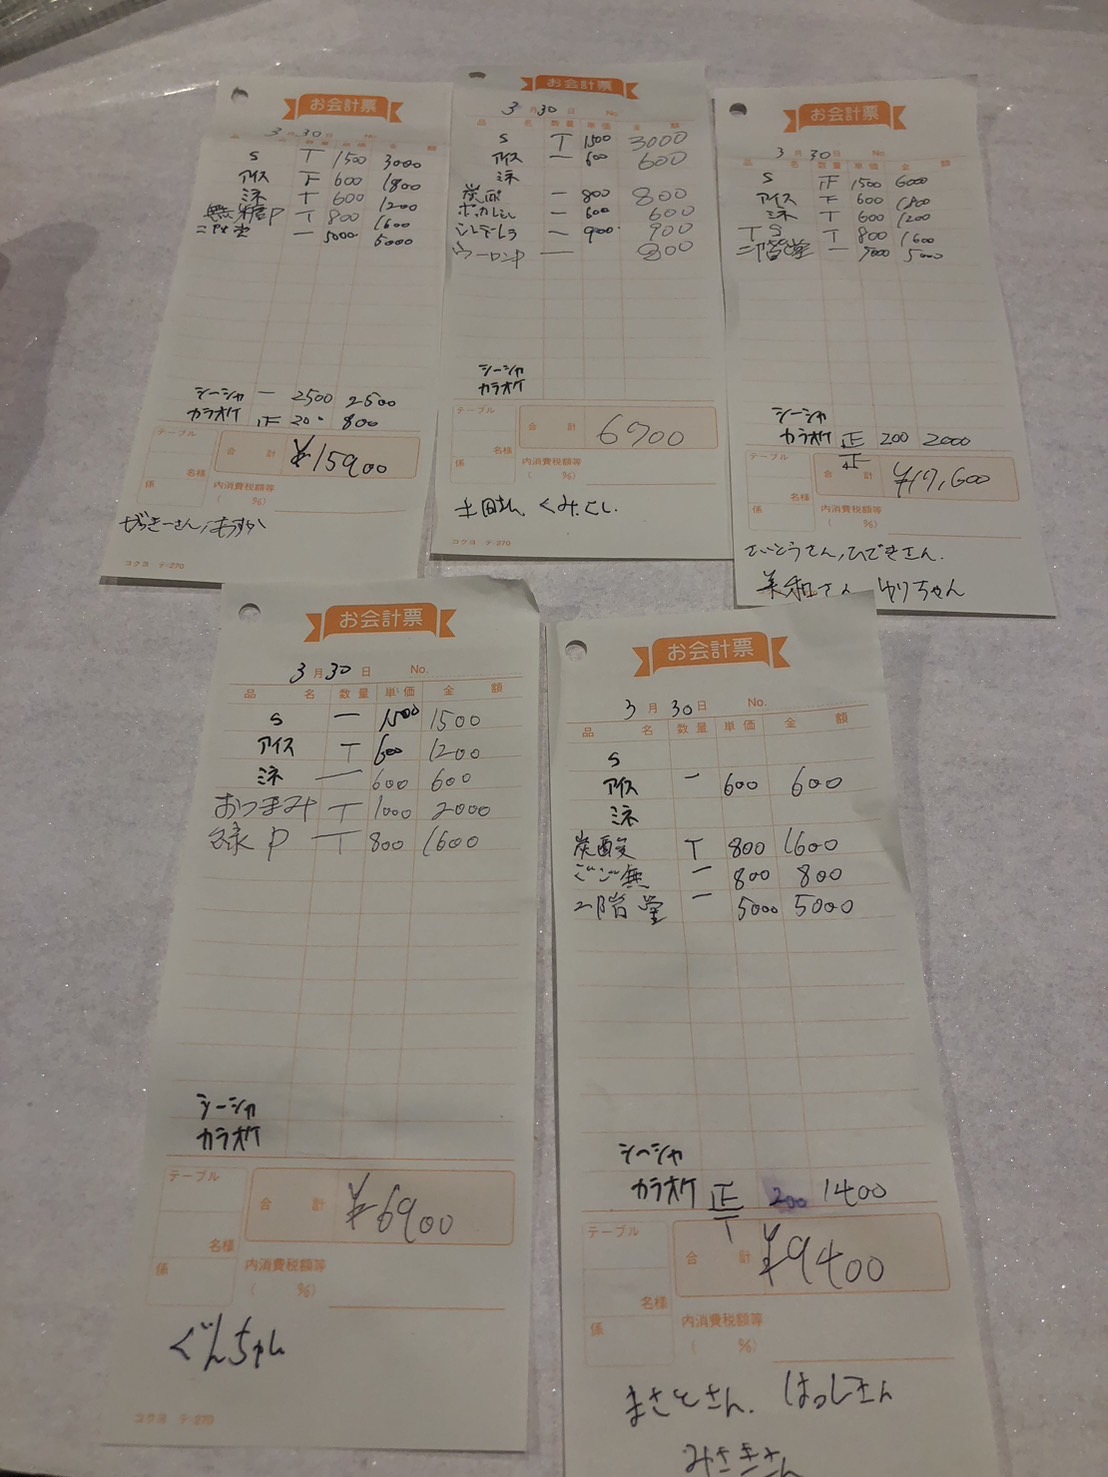 お会計票
3月30日 No.
品名 数量 単価 金額
S T 1500 3000
アイス 下 600 1800
ミネ T 600 1200
無糖P T 800 1600
二階堂 一 5000 5000
シーシャ 一 2500 2500
カラオケ 正 200 800
テーブル 合計 ¥15900
名様
係 内消費税額等
( %)
コクヨ テ-270
お会計票
3月30日 No.
品名 数量 単価 金額
S T 1500 3000
アイス 一 600 600
ミネ
炭酸 一 800 800
ポッカレモン 一 600 600
一 900 900
ウーロンP 一 800
シーシャ
カラオケ
テーブル 合計 6700
名様
係 内消費税額等
( %)
コクヨ テ-270
お会計票
3月30日 No.
品名 数量 単価 金額
S 正 1500 6000
アイス 下 600 1800
ミネ T 600 1200
TS T 800 1600
二階堂 一 5000 5000
シーシャ
カラオケ 正正 200 2000
テーブル 合計 ¥17,600
名様
係 内消費税額等
( %)
さいとうさん,ひできさん.
美和さん ゆりちゃん
お会計票
3月30日 No.
品名 数量 単価 金額
S 一 1500 1500
アイス T 600 1200
ミネ 一 600 600
おつまみ T 1000 2000
緑P T 800 1600
シーシャ
カラオケ
テーブル 合計 ¥6900
名様
係 内消費税額等
( %)
ぐんちゃん
コクヨ テ-270
お会計票
3月30日 No.
品名 数量 単価 金額
S
アイス 一 600 600
ミネ
炭酸 T 800 1600
ごご無 一 800 800
二階堂 一 5000 5000
シーシャ
カラオケ 正T 200 1400
テーブル 合計 ¥9400
名様
係 内消費税額等
( %)
まさとさん. はっしーさん
みさきさん